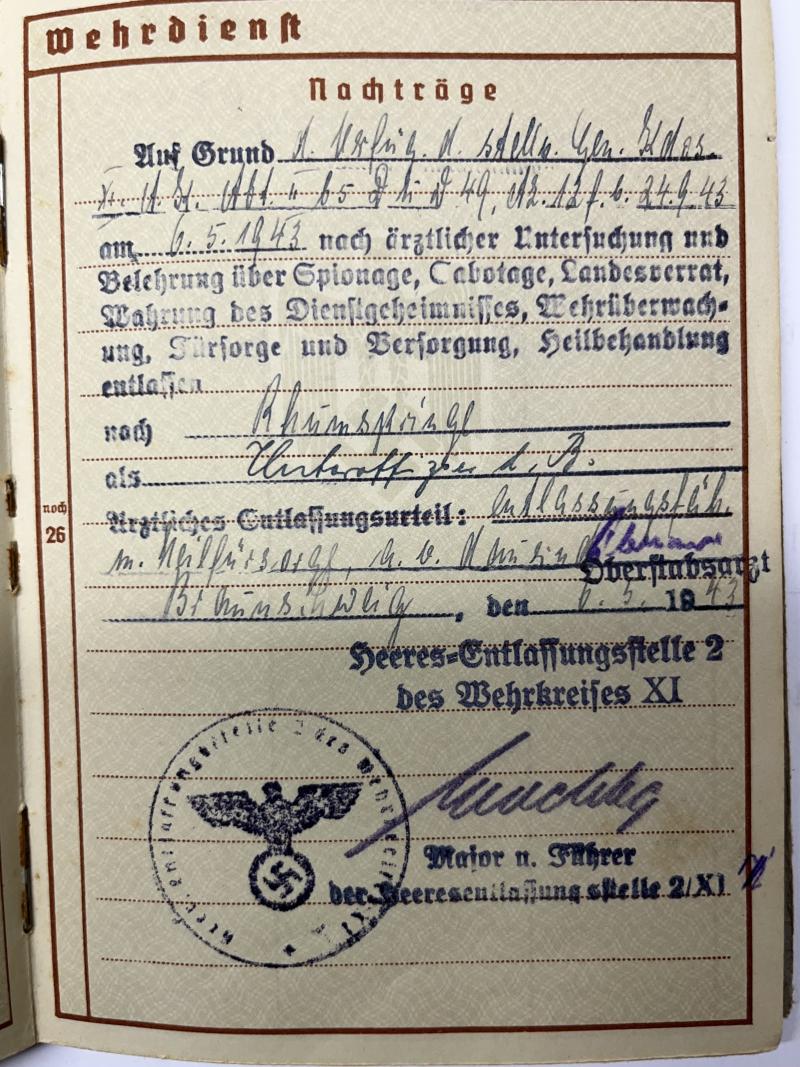 Wehrdienst
Nachträge
Auf Grund d. Verfüg. d. stellv. Gen. Kdos.
XI. A. K. Abt. II b5 D u D 49, Az. 12 f. v. 24.9.43
am 6.5.1943 nach ärztlicher Untersuchung und
Belehrung über Spionage, Sabotage, Landesverrat,
Wahrung des Dienstgeheimnisses, Wehrüberwach-
ung, Fürsorge und Versorgung, Heilbehandlung
entlassen
nach Rhumspringe
als Unteroffizier d. B.
noch
26
Ärztliches Entlassungsurteil: entlassungsfäh.
m. Heilfürsorge, a. v.
Oberstabsarzt
Braunschweig, den 6.5. 1943
Heeres-Entlassungsstelle 2
des Wehrkreises XI
Major u. Führer
der Heeresentlassungsstelle 2/XI
Heeresentlassungsstelle 2 des Wehrkreises XI